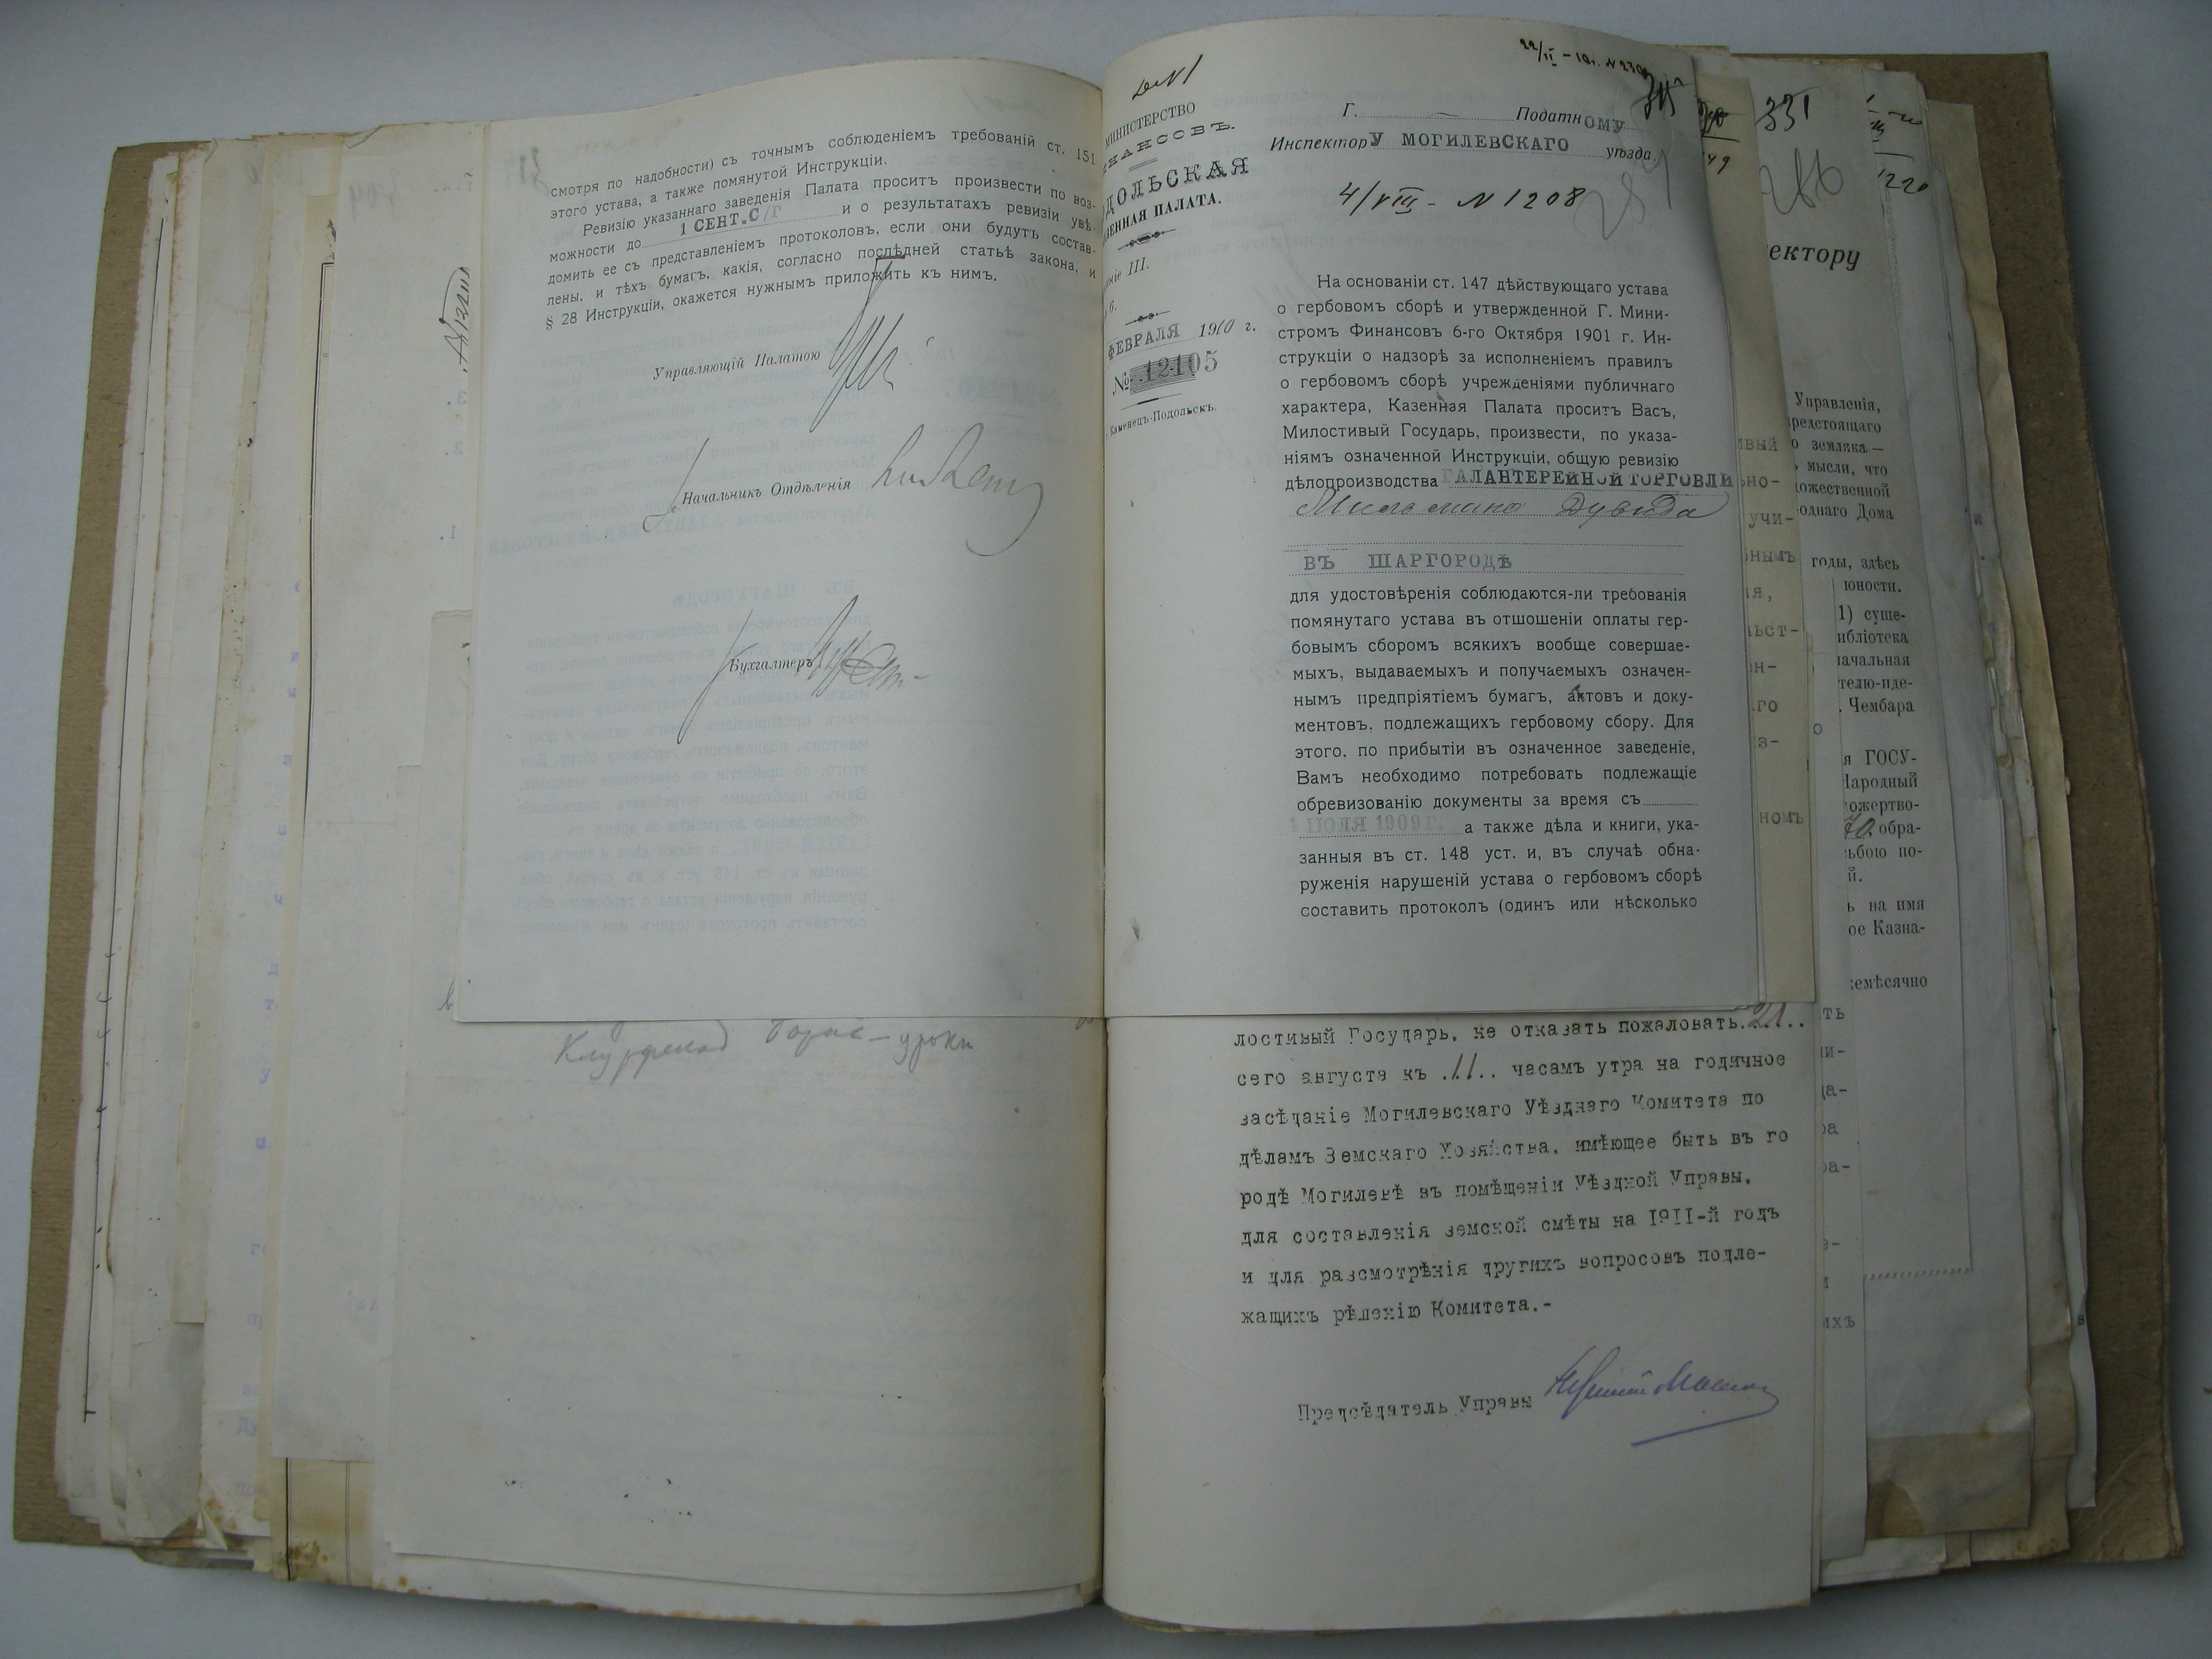 смотря по надобности) съ точнымъ соблюденіемъ требованій ст. 151
этого устава, а также помянутой Инструкціи.
Ревизію указаннаго заведенія Палата проситъ произвести по воз-
можности до 1 СЕНТ.С/Г и о результатахъ ревизіи увѣ-
домить ее съ представленіемъ протоколовъ, если они будутъ состав-
лены, и тѣхъ бумагъ, какія, согласно послѣдней статьѣ закона, и
§ 28 Инструкціи, окажется нужнымъ приложить къ нимъ.
Управляющій Палатою
Начальникъ Отдѣленія
Бухгалтеръ
МИНИСТЕРСТВО
НАНСОВЪ.
ДОЛЬСКАЯ
ЗЕННАЯ ПАЛАТА.
III.
6.
ФЕВРАЛЯ 1910 г.
№ 12105
Каменецъ-Подольскъ.
Г. Податному
Инспектору МОГИЛЕВСКАГО уѣзда.
4/VIII - N 1208
На основаніи ст. 147 дѣйствующаго устава
о гербовомъ сборѣ и утвержденной Г. Мини-
стромъ Финансовъ 6-го Октября 1901 г. Ин-
струкціи о надзорѣ за исполненіемъ правилъ
о гербовомъ сборѣ учрежденіями публичнаго
характера, Казенная Палата проситъ Васъ,
Милостивый Государь, произвести, по указа-
ніямъ означенной Инструкціи, общую ревизію
дѣлопроизводства ГАЛАНТЕРЕЙНОЙ ТОРГОВЛИ
Мильмана Дувида
ВЪ ШАРГОРОДѢ
для удостовѣренія соблюдаются-ли требованія
помянутаго устава въ отшошеніи оплаты гер-
бовымъ сборомъ всякихъ вообще совершае-
мыхъ, выдаваемыхъ и получаемыхъ означен-
нымъ предпріятіемъ бумагъ, актовъ и доку-
ментовъ, подлежащихъ гербовому сбору. Для
этого, по прибытіи въ означенное заведеніе,
Вамъ необходимо потребовать подлежащіе
обревизованію документы за время съ
1 ІЮЛЯ 1909 Г. а также дѣла и книги, ука-
занныя въ ст. 148 уст. и, въ случаѣ обна-
руженія нарушеній устава о гербовомъ сборѣ
составить протоколъ (одинъ или нѣсколько
лостивый Государь, не отказать пожаловать 21..
сего августа къ .11.. часамъ утра на годичное
засѣданіе Могилевскаго Уѣзднаго Комитета по
дѣламъ Земскаго Хозяйства, имѣющее быть въ го
родѣ Могилевѣ въ помѣщеніи Уѣздной Управы,
для составленія земской смѣты на 1911-й годъ
и для разсмотрѣнія другихъ вопросовъ подле-
жащихъ рѣшенію Комитета.-
Предсѣдатель Управы
331
1220
ектору
Управленія,
редстоящаго
о земляка —
мысли, что
ожественной
однаго Дома
годы, здѣсь
юности.
1) суще-
ибліотека
начальная
телю-иде-
. Чембара
я ГОСУ-
Народный
ожертво-
обра-
ьбою по-
й.
ь на имя
ое Казна-
емѣсячно